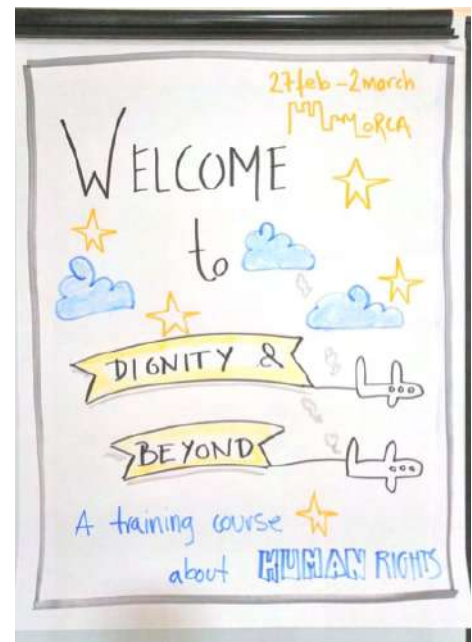 27feb-2march
MORCA
WELCOME
to
DIGNITY &
BEYOND
A training course
about HUMAN RIGHTS